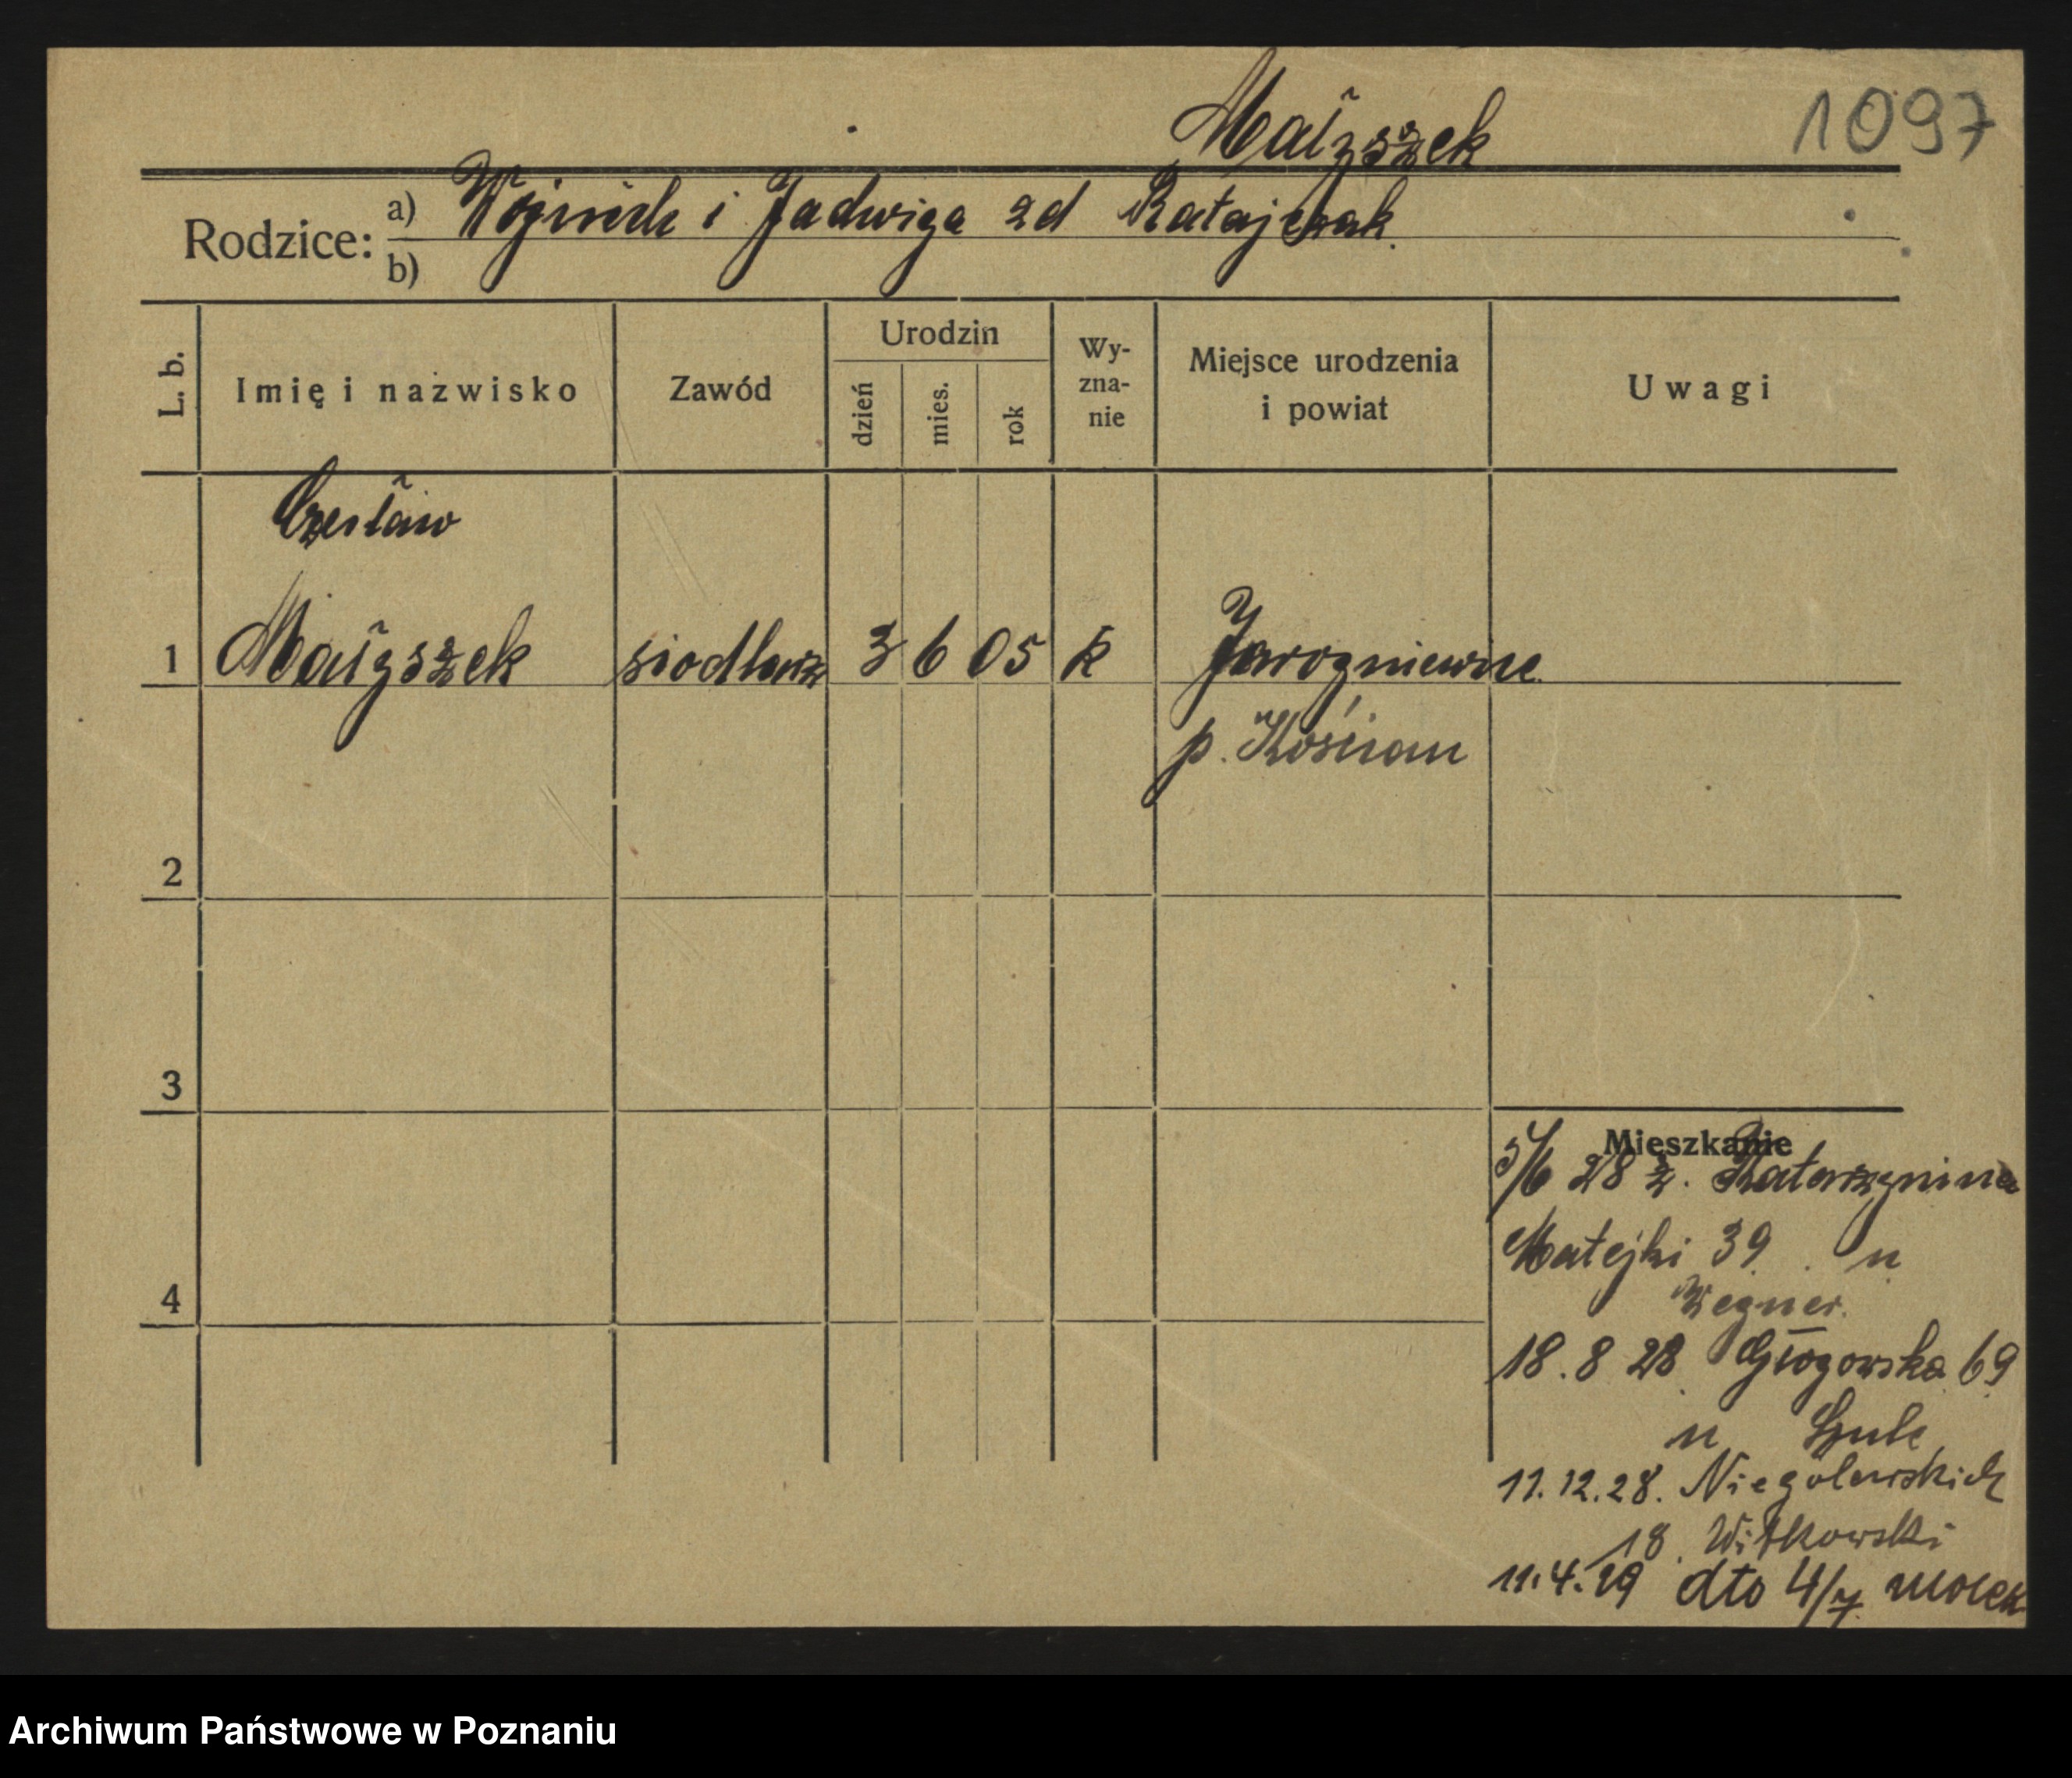 Małyszek
1097
Rodzice: a) Wojciech i Jadwiga zd Ratajczak.
b)
L. b. Imię i nazwisko Zawód Urodzin dzień mies. rok Wyzna-nie Miejsce urodzenia i powiat Uwagi
Czesław
1 Małyszek siodlarz 3 6 05 k Jarogniewice
p. Kościan
2
3
Mieszkanie
5/6 28 z. Katarzynina
4
Matejki 39 u
Wegner.
18.8 28 Głogowska 69
u
11.12.28. Niegolewskich
18. Witkowski
11.4.29 dto 4/7
Archiwum Państwowe w Poznaniu